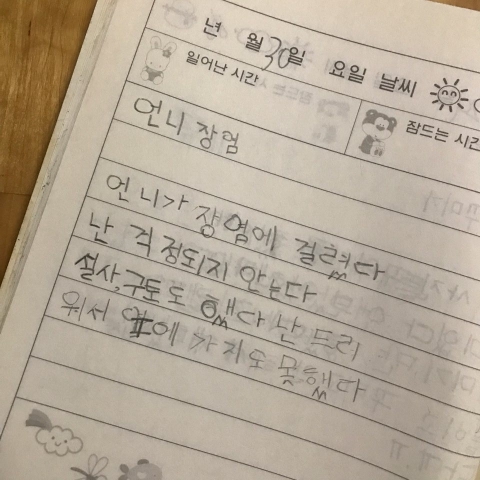 년 월 30일 요일 날씨
일어난 시간
잠드는 시간
언니 장렴
언니가 장염에 걸렸다
난 걱정되지 안는다
설사,구토도 했다 난 드리
워서 옆에 가지도 못했다